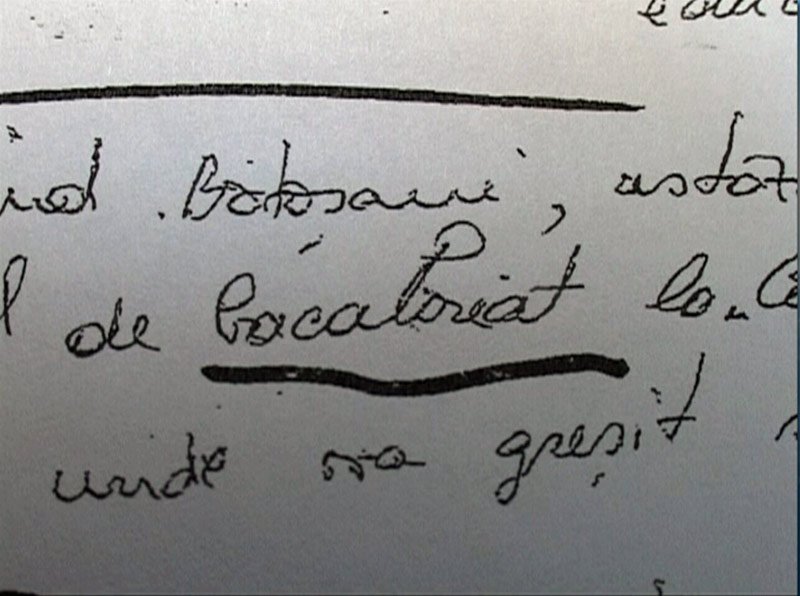 Botosani, astăz
de bacaloriat la
unde sa gresit